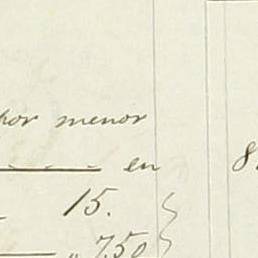 por menor
en 8
15.
" 750